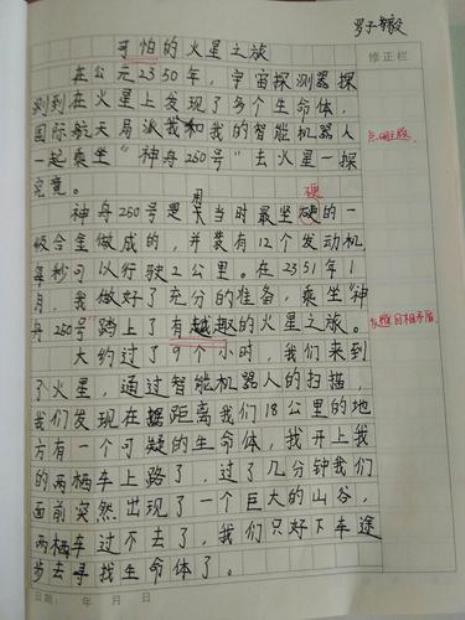 罗子毅
可怕的火星之旅
修正栏
在公元2350年，宇宙探测器探
测到在火星上发现了多个生命体，
国际航天局派我和我的智能机器人
一起乘坐“神舟250号”去火星一探
究竟。
硬
神舟250号是用当时最坚硬的一
级合金做成的，并装有12个发动机，
每秒可以行驶2公里。在2351年1
月，我做好了充分的准备，乘坐“神
舟250号”踏上了有趣的火星之旅。
大约过了9个小时，我们来到
了火星，通过智能机器人的扫描，
我们发现在据距离我们18公里的地
方有一个可疑的生命体，我开上我
的两栖车上路了，过了几分钟我们
面前突然出现了一个巨大的山谷，
两栖车过不去了，我们只好下车途
步去寻找生命体了。
日期： 年 月 日